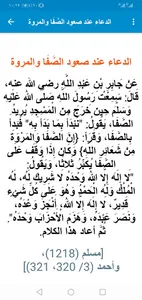 الدعاء عند صعود الصَّفَا والمروة
الدعاء عند صعود الصَّفَا والمروة
عَنْ جَابِرِ بْنِ عَبْدِ اللَّهِ رضي الله عنه،
قَالَ: سَمِعْتُ رَسُولَ اللَّهِ صَلَّى الله عَلَيْهِ
وَسَلَّم حِينَ خَرَجَ مِنَ الْمَسْجِدِ يُرِيدُ
الصَّفَا، يَقُولُ: "نَبْدَأُ بِمَا بَدَأَ بِهِ" فَبَدَأَ
بِالصَّفَا، وَقَرَأَ: {إِنَّ الصَّفَا وَالْمَرْوَةَ
مِنْ شَعَائِرِ اللَّهِ} وَكَانَ إِذَا وَقَفَ عَلَى
الصَّفَا يُكَبِّرُ ثَلَاثًا، وَيَقُولُ:
"لَا إِلَهَ إِلَّا اللَّهُ وَحْدَهُ لَا شَرِيكَ لَهُ، لَهُ
الْمُلْكُ وَلَهُ الْحَمْدُ وَهُوَ عَلَى كُلِّ شَيْءٍ
قَدِيرٌ، لَا إِلَهَ إِلَّا اللَّهُ، أَنْجَزَ وَعْدَهُ،
وَنَصَرَ عَبْدَهُ، وَهَزَمَ الْأَحْزَابَ وَحْدَهُ".
ثُمَّ أَعَادَ هَذَا الْكَلَامَ
[مسلم (1218)،
وأحمد (3/ 320، 321)]